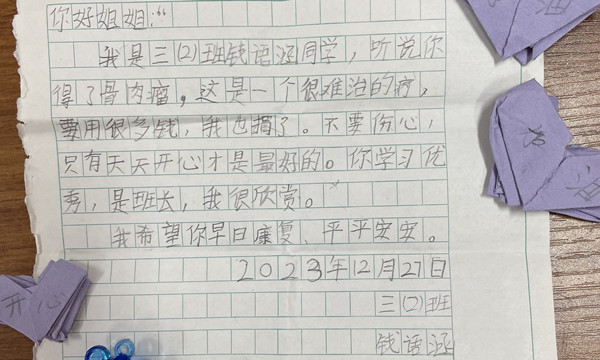 你好姐姐：“
我是三（2）班钱语涵同学，听说你
得了骨肉瘤，这是一个很难治的疗，
要用很多钱，我也捐了。不要伤心，
只有天天开心才是最好的。你学习优
秀，是班长，我很欣赏。
我希望你早日康复、平平安安。
2023年12月27日
三（2）班
钱语涵
开心